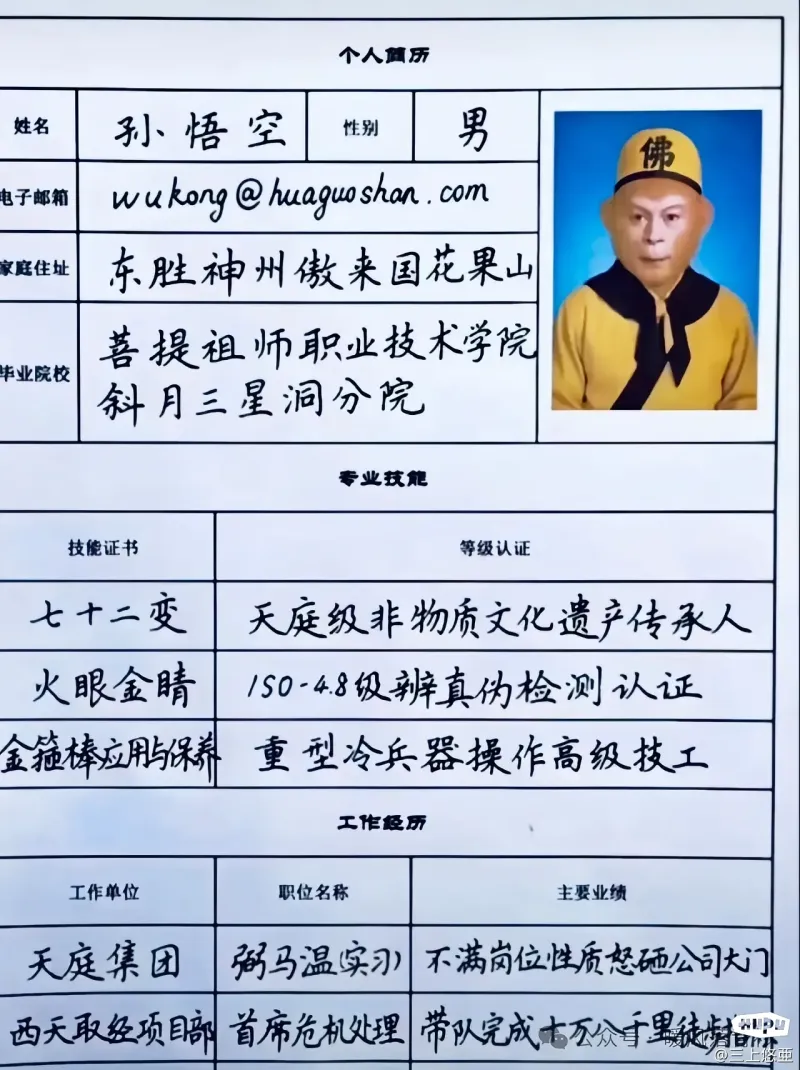 个人简历
姓名 孙悟空 性别 男
佛
电子邮箱 wukong@huaguoshan.com
家庭住址 东胜神州傲来国花果山
毕业院校 菩提祖师职业技术学院
斜月三星洞分院
专业技能
技能证书 等级认证
七十二变 天庭级非物质文化遗产传承人
火眼金睛 ISO-4.8级辨真伪检测认证
金箍棒应用与保养 重型冷兵器操作高级技工
工作经历
工作单位 职位名称 主要业绩
天庭集团 弼马温(实习) 不满岗位性质怒砸公司大门
西天取经项目部 首席危机处理 带队完成十万八千里徒步
公众号
@三上悠亜